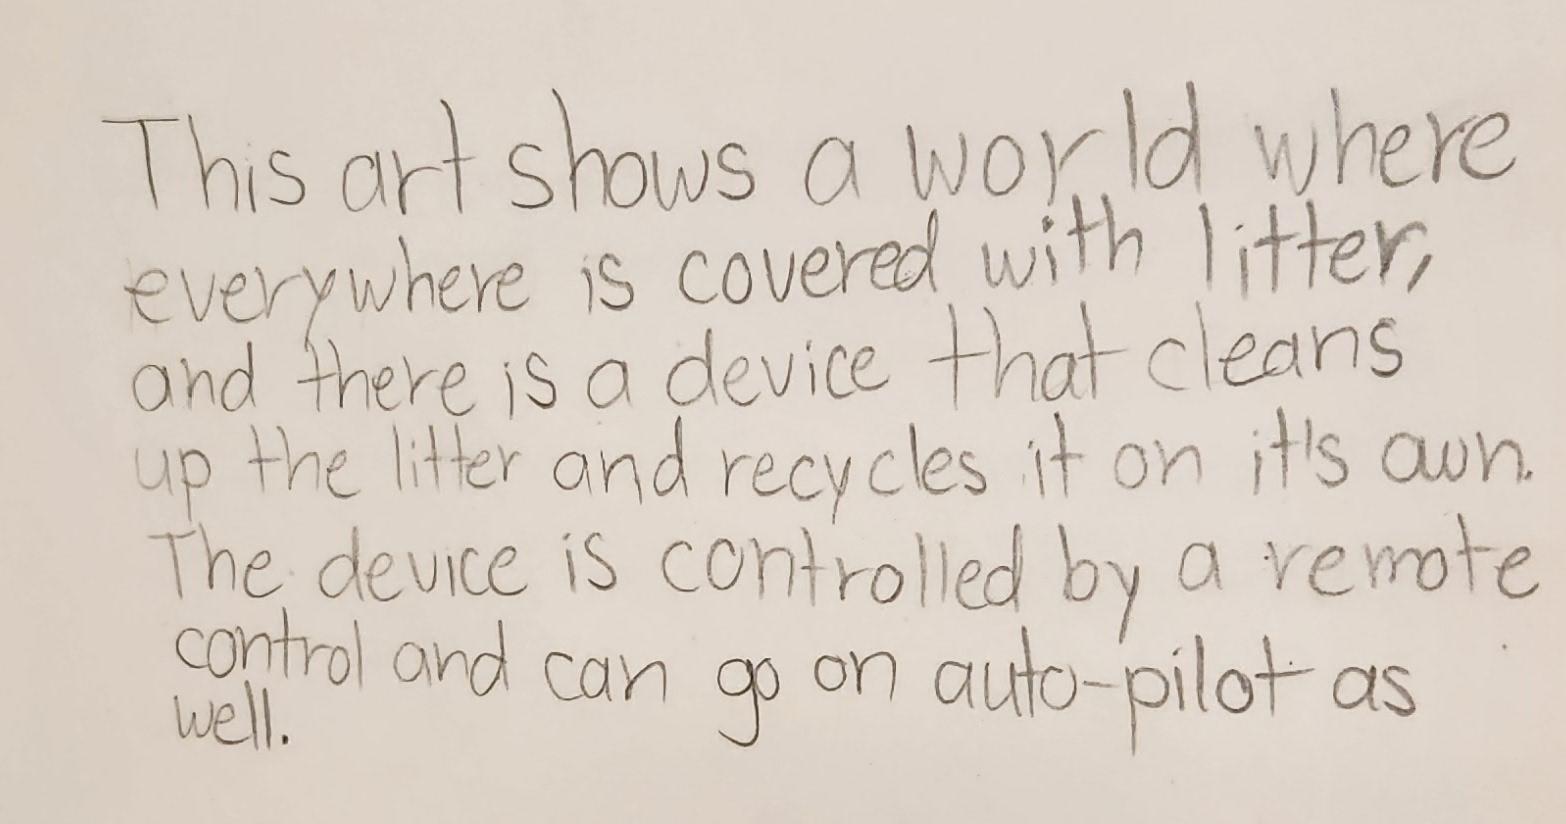 This art shows a world where
everywhere is covered with litter,
and there is a device that cleans
up the litter and recycles it on it's own.
The device is controlled by a remote
control and can go on auto-pilot as
well.